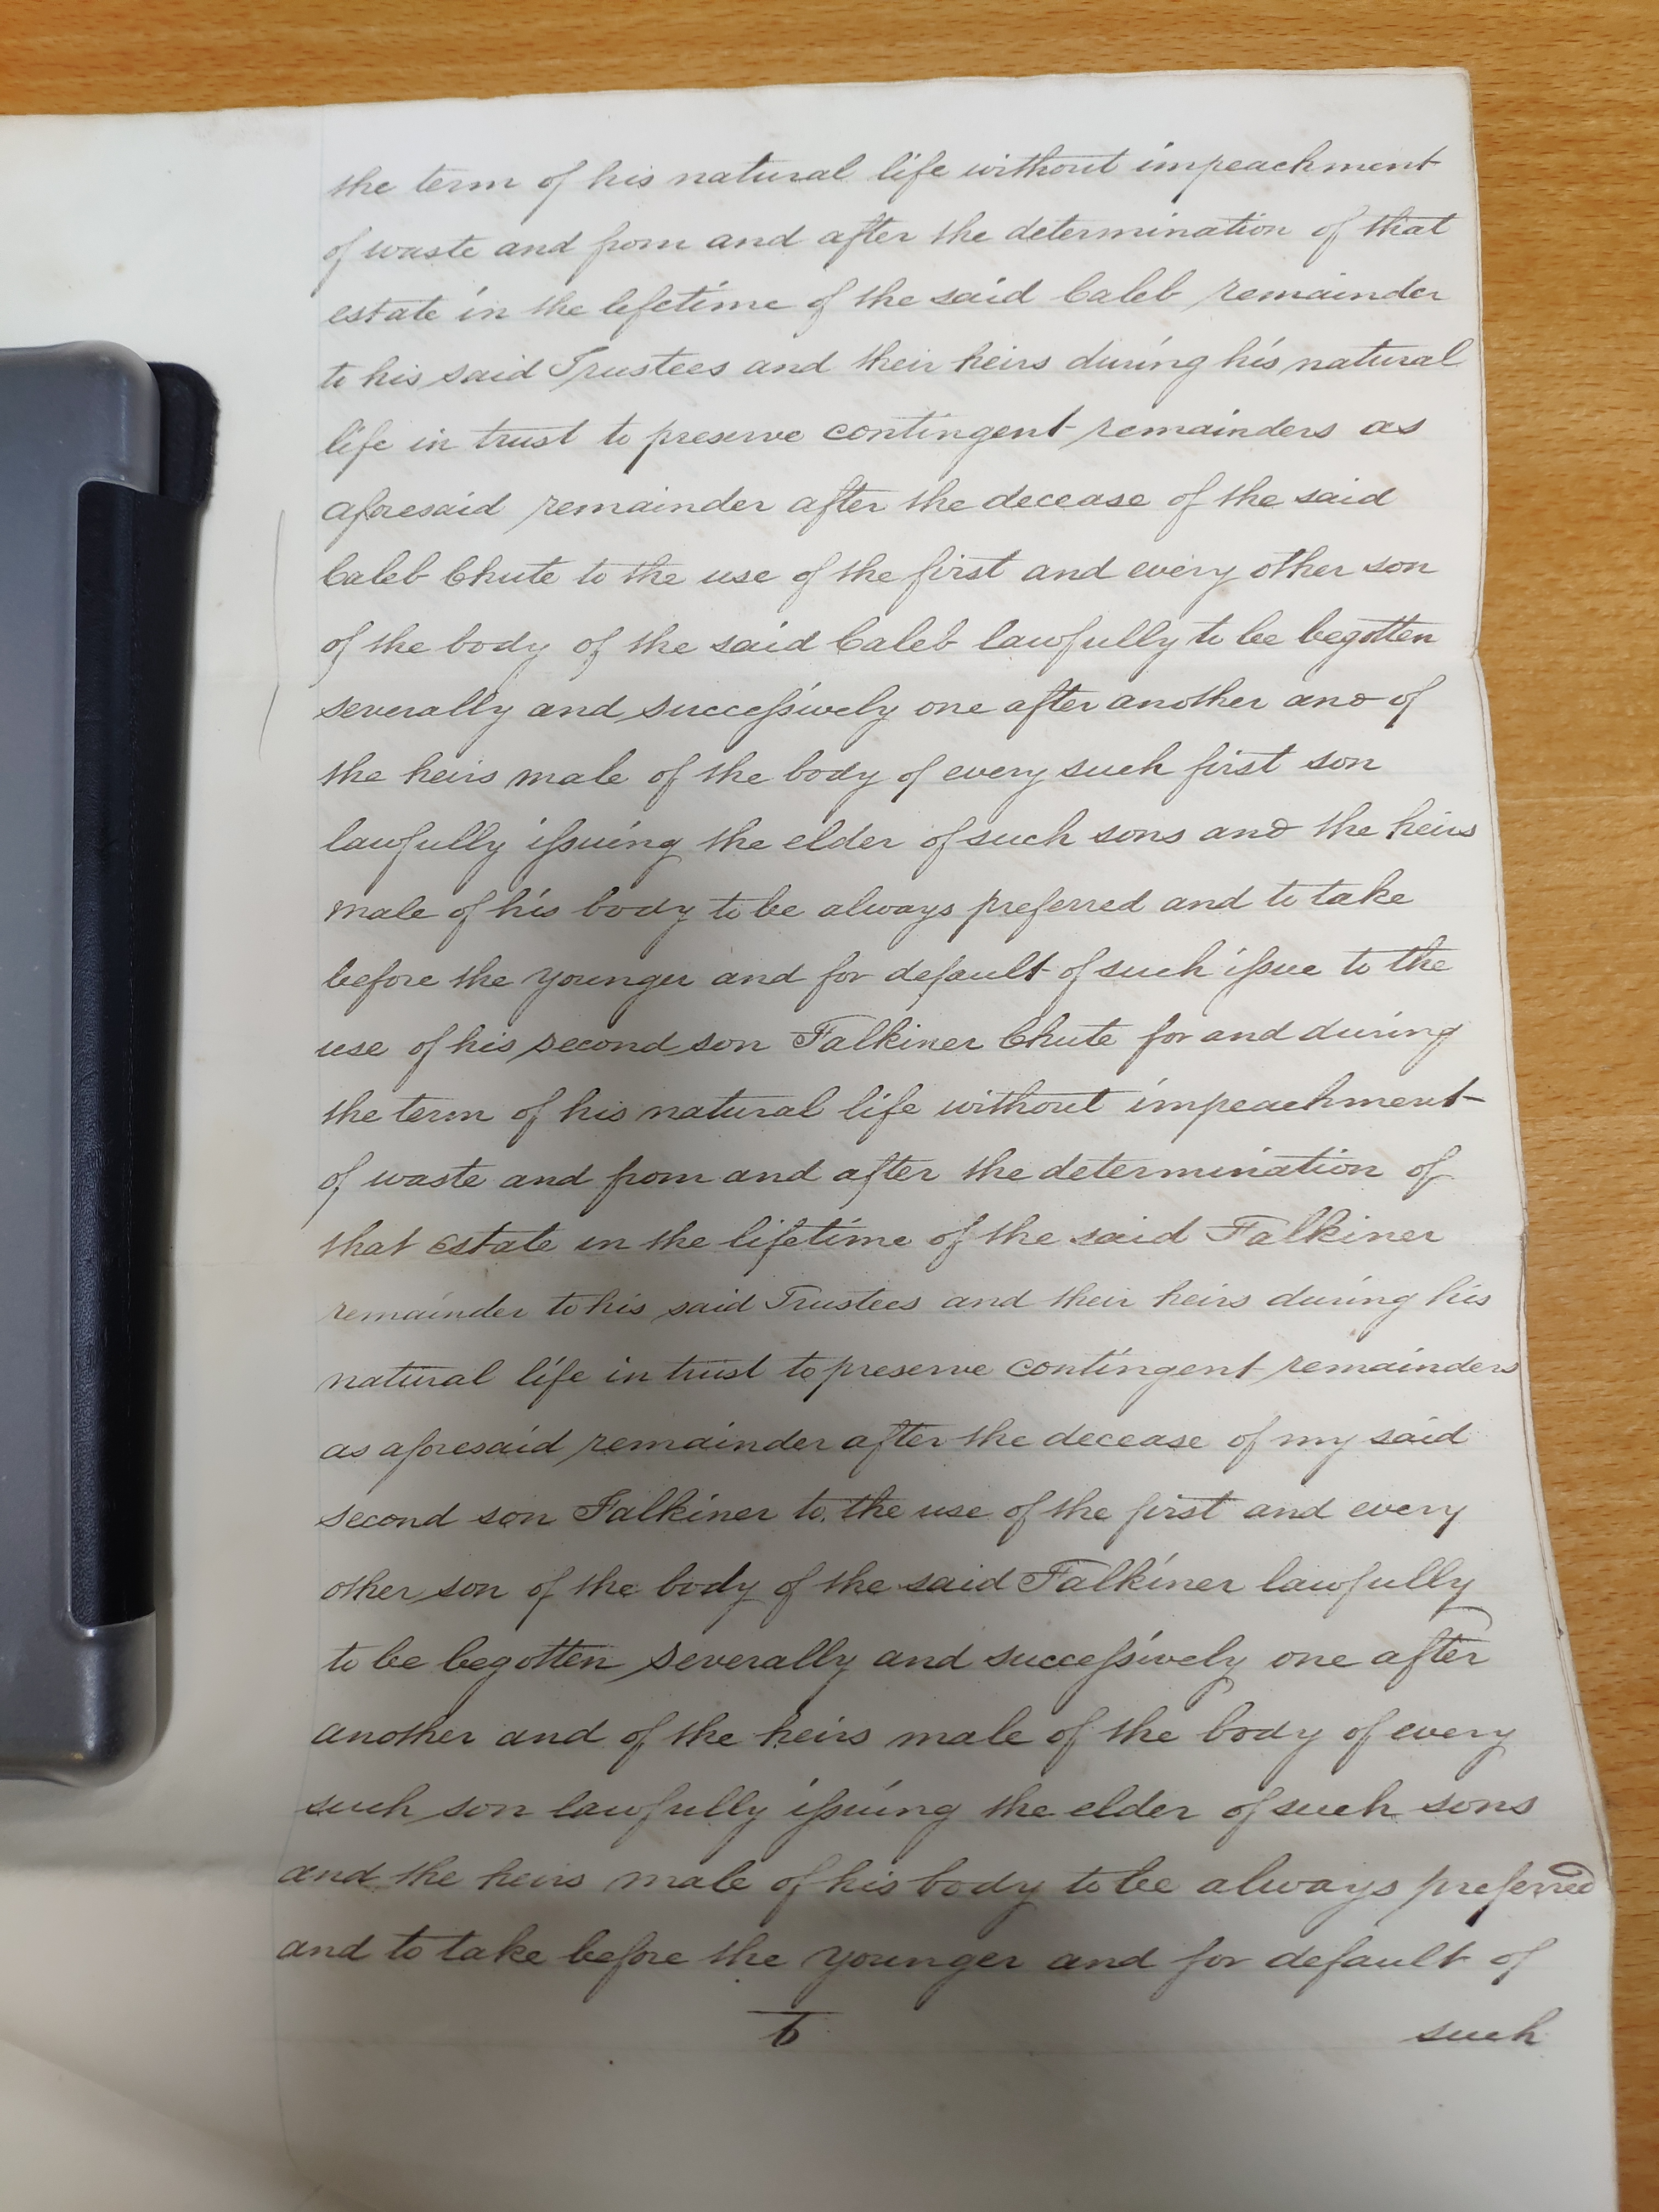 the term of his natural life without impeachment
of waste and from and after the determination of that
estate in the lifetime of the said Caleb remainder
to his said Trustees and their heirs during his natural
life in trust to preserve contingent remainders as
aforesaid remainder after the decease of the said
Caleb Chute to the use of the first and every other son
of the body of the said Caleb lawfully to be begotten
severally and succeſsively one after another and of
the heirs male of the body of every such first son
lawfully iſsuing the elder of such sons and the heirs
male of his body to be always preferred and to take
before the younger and for default of such iſsue to the
use of his second son Falkiner Chute for and during
the term of his natural life without impeachment
of waste and from and after the determination of
that estate in the lifetime of the said Falkiner
remainder to his said Trustees and their heirs during his
natural life in trust to preserve contingent remainders
as aforesaid remainder after the decease of my said
second son Falkiner to the use of the first and every
other son of the body of the said Falkiner lawfully
to be begotten severally and succeſsively one after
another and of the heirs male of the body of every
such son lawfully iſsuing the elder of such sons
and the heirs male of his body to be always preferred
and to take before the younger and for default of
6 such